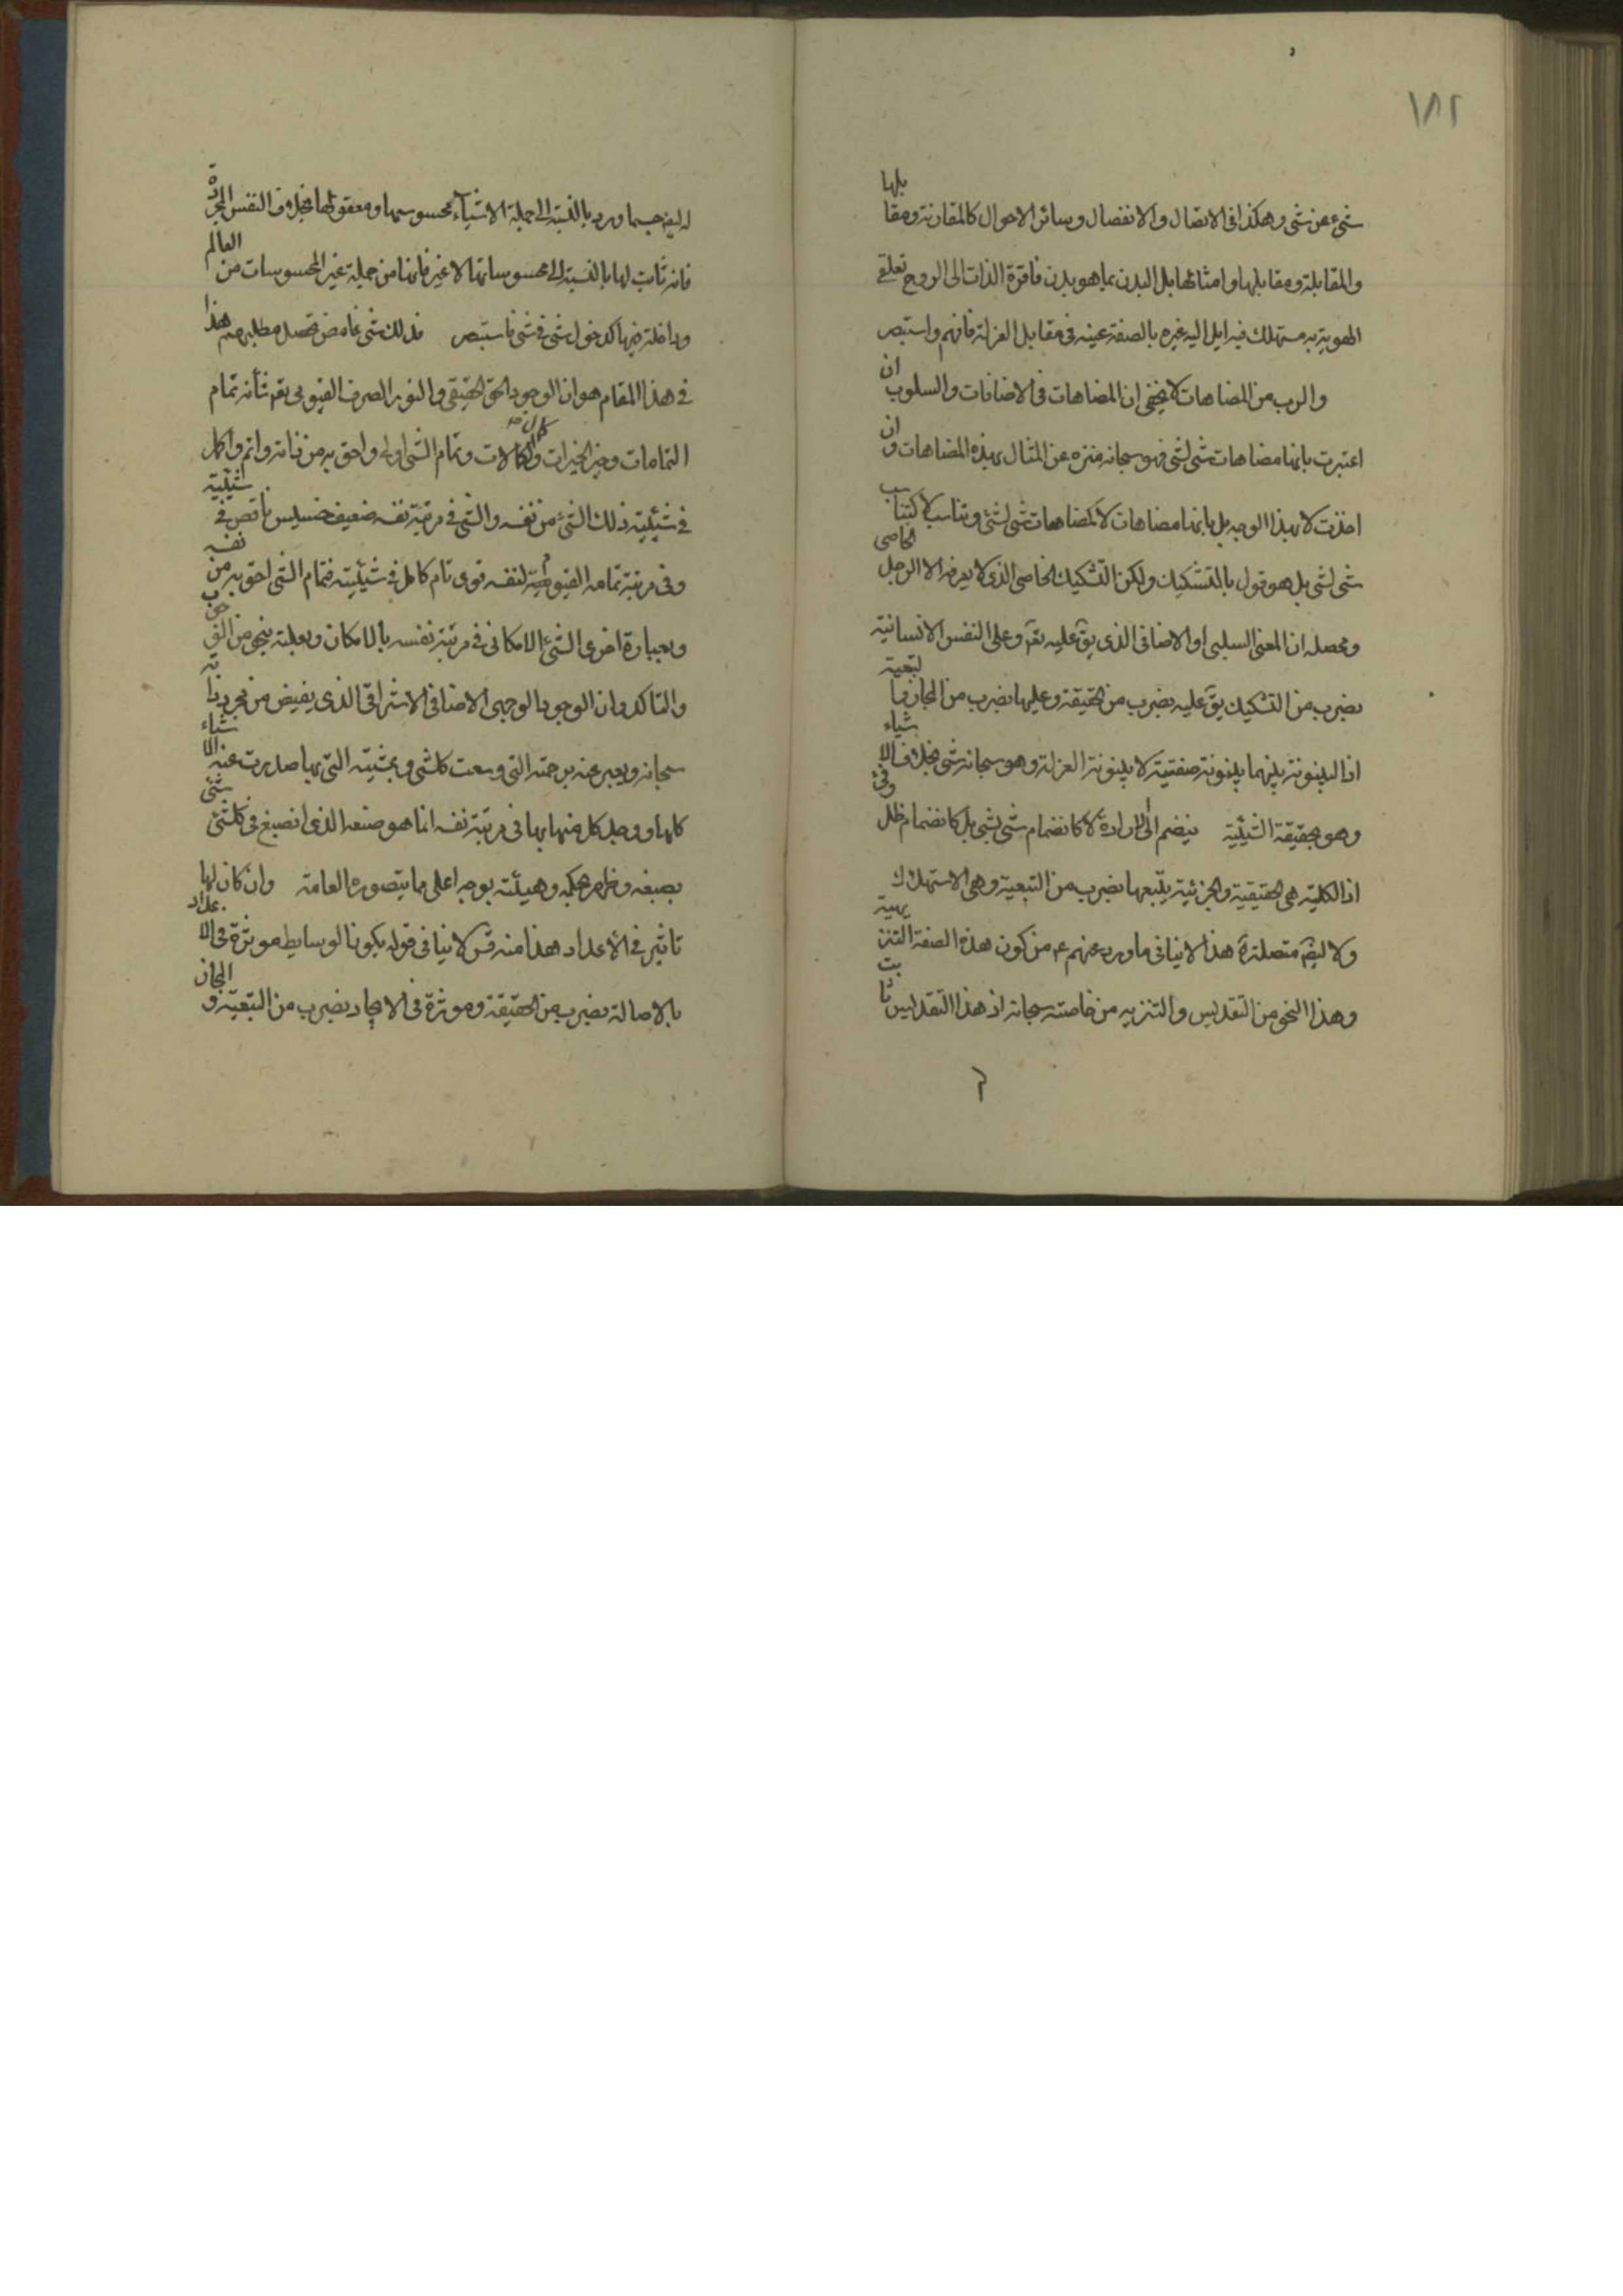 ١٨٢
شیء عن شی و هکذا فی الاتصال و الانفصال و سائر الاحوال کالمقارنة و مقابلها
و المقابلة و مقابلها و امثالها بل البدن بما هو بدن فاقرة الذات الی الروح تعلقی
الهویة به مستهلک فیه ایل الیه غیره بالصفة عینه فی مقابل العزلة فافهم و استبصر
و الرب من المضاهات لا یخفی ان المضاهات فی الاضافات و السلوب ان
اعتبرت بانها مضاهات شی لشی فهو سبحانه منزه عن المثال بهذه المضاهات و ان
اخذت لا بهذا الوجه بل بانها مضاهات لا کمضاهات شی لشی و تناسب لا کتناسب
شی لشی بل هو قول بالتشکیک ولکن التشکیک الخاصی الذی لا یعرفه الا الرجل الخاصی
و محصله ان المعنی السلبی او الاضافی الذی یق علیه تعٓ و علی النفس الانسانیة
بضرب من التشکیک یق علیه بضرب من الحقیقة و علیها بضرب من المجاز و بالتبعیة
اذ البینونة بینهما بینونة صفتیة لا بینونة العزلة و هو سبحانه شی بخلاف الاشیاء
و هو بحقیقة الشیئیة ینضم الی الارادة لا کانضمام شی بشی بل کانضمام ظل و فیء
اذ الکلیة هی الحقیقیة و الجزئیة یتبعها بضرب من التبعیة و هی الاستهلاک
و لا لیضٓ متصلة هذا لا ینافی ما ورد عنهم ع من کون هذه الصفة التنزیهیة
و هذا النحو من التقدیس و التنزیه من خاصته سبحانه اذ هذا التقدیس ثابت
له لیضٓ حسبما ورد بالنسبة الی جملة الاشیاء محسوسها و معقولها بخلاف النفس المجردة
فانه ثابت لها بالنسبة الی محسوساتها لا غیر فانها من جملة غیر المحسوسات من العالم
و داخلة فیها کدخول شی فی شی فاستبصر فذلک شی غامض تحصل مطلبهم هذا
فی هذا المقام هو ان الوجود الحق الحقیقی و النور الصرف القیومی تعٓ شأنه تمام
التمامات و خیر الخیرات و کمال الکمالات و تمام الشی اولی و احق به من ذاته و اتم و اکمل
فی شیئیة ذلک الشی من نفسه و الشی فی مرتبة نفسه ضعیف خسیس ناقص فی شیئیته
و فی مرتبة تمامه القیومیة لنفسه قوی تام کامل فی شیئیته فتمام الشی احق به من نفسه
و بعبارة اخری الشیء الامکانی فی مرتبة نفسه بالامکان و بعلته بنحو من الوجوب
و التأکد و ان الوجود الوجهی الاضافی الاشراقی الذی یفیض من مجرد ذاته
سبحانه و یعبر عنه برحمته التی وسعت کلشی و بمشیته التی بها صدرت عنه الاشیاء
کلها و وجد کل منها بها فی مرتبة نفسه انما هو صنعه الذی انصبغ فی کلشی شی
بصبغه و ظهر بحکمه و هیئته بوجه اعلی مما یتصوره العامة و ان کان لها
تاثیر فی الأعداد هذا منه قس لا ینافی قوله بکون الوسایط موثرة فی الاعداد
بالاصالة بضرب من الحقیقة و موثرة فی الایجاد بضرب من التبعیة و المجاز